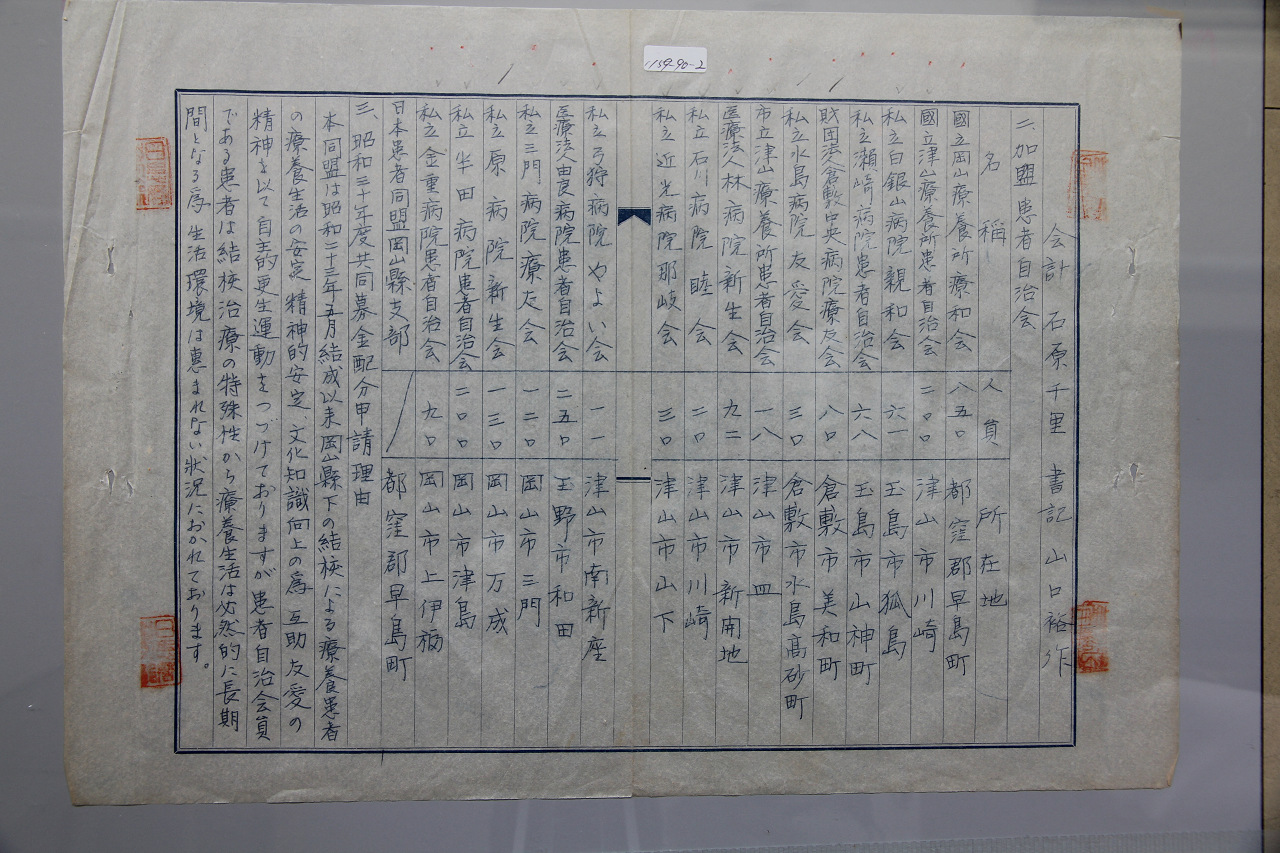 1159-90-2
会計 石原千里 書記 山口裕作
二、加盟患者自治会
名称 人員 所在地
國立岡山療養所療和会 八五〇 都窪郡早島町
國立津山療養所患者自治会 二〇〇 津山市川崎
私立白銀山病院親和会 六一 玉島市狐島
私立瀬崎病院患者自治会 六八 玉島市山神町
財団法人倉敷中央病院療友会 八〇 倉敷市美和町
私立水島病院友愛会 三〇 倉敷市水島高砂町
市立津山療養所患者自治会 一八 津山市皿
医療法人林病院新生会 九二 津山市新開地
私立石川病院睦会 二〇 津山市川崎
私立近光病院那岐会 三〇 津山市山下
私立弓狩病院やよい会 一一 津山市南新座
医療法人由良病院患者自治会 二五〇 玉野市和田
私立三門病院療友会 一二〇 岡山市三門
私立原病院新生会 一三〇 岡山市万成
私立半田病院患者自治会 二〇〇 岡山市津島
私立金重病院患者自治会 九〇 岡山市上伊福
日本患者同盟岡山縣支部 都窪郡早島町
三、昭和三十年度共同募金配分申請理由
本同盟は昭和二十三年五月結成以来岡山縣下の結核による療養患者
の療養生活の安定 精神的安定 文化知識向上の為 互助友愛の
精神を以て自主的更生運動をつづけておりますが患者自治会員
である患者は結核治療の特殊性から療養生活は必然的に長期
間となる為 生活環境は恵まれない状況におかれております。